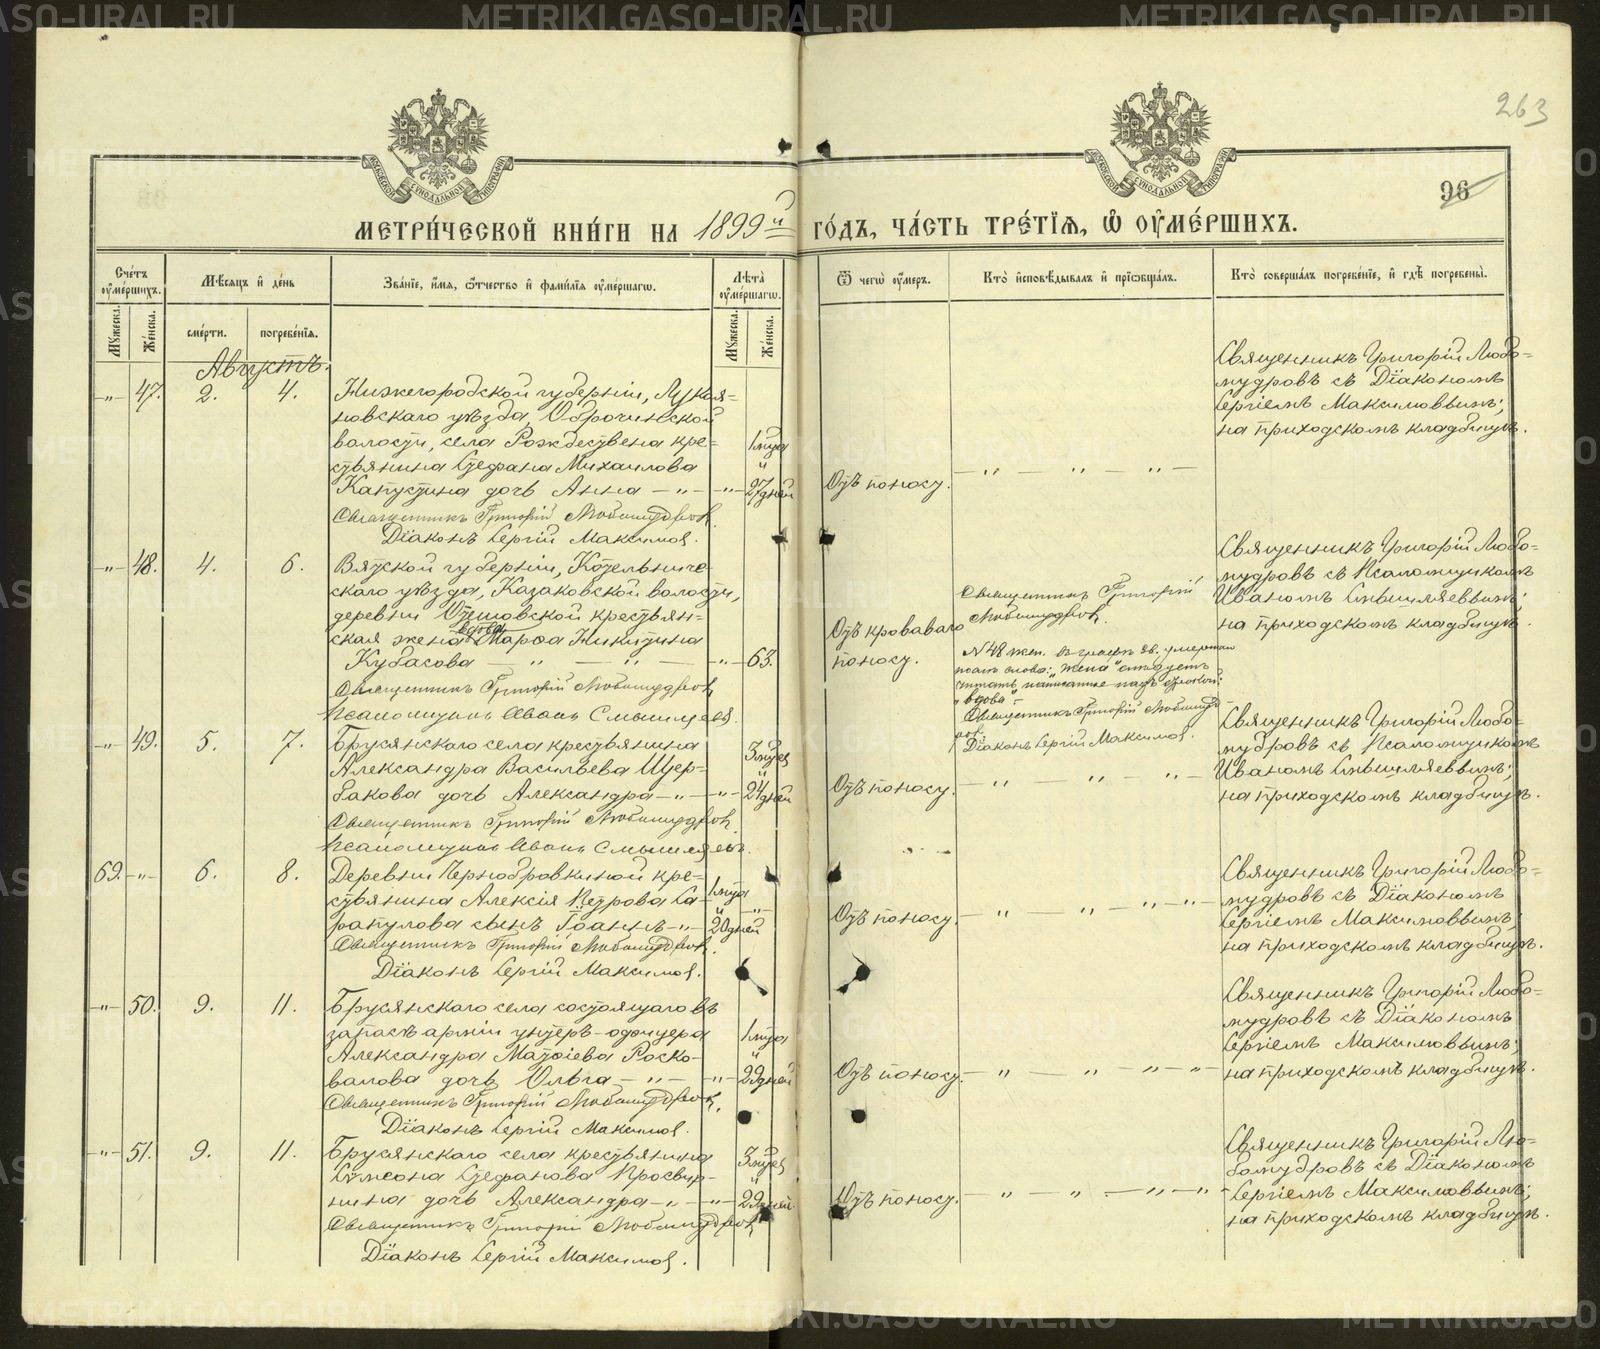 263
96
МЕТРИ́ЧЕСКОЙ КНИ́ГИ НА 1899й ГО́ДЪ, ЧА́СТЬ ТРЕ́ТІѦ, Ѡ ОУМЕ́РШИХЪ.
Сче́тъ оуме́ршихъ.
Мꙋжеска.
Же́нска.
Мѣ́сяцъ и де́нь
сме́рти.
погребе́нія.
Зва́ніе, и́мя, ѻ́тчество и фами́лія оуме́ршагѡ.
Лѣта̀ оуме́ршагѡ.
Мꙋжеска.
Же́нска.
Ѿ чегѡ̀ оу́меръ.
Кто̀ исповѣ́дывалъ и пріѡбща́лъ.
Кто̀ соверша́лъ погребе́ніе, и гдѣ̀ погребены̀.
Августъ.
-"- 47. 2. 4. Нижегородской губерніи, Лукоя-
новскаго уѣзда, Оброчинской
волости, села Рождествена кре-
стьянина Стефана Михаилова
Капустина дочь Анна -"- -"- 1 мца " 27 дней
Священникъ Григорій Любомудровъ.
Діаконъ Сергій Максимов.
Отъ поносу. -"- -"- -"-
Священникъ Григорій Любо-
мудровъ съ Діакономъ
Сергіемъ Максимовымъ;
на приходскомъ кладбищѣ.
-"- 48. 4. 6. Вятской губерніи, Котельниче-
скаго уѣзда, Казаковской волости,
деревни крестьян-
ская жена вдова Марѳа Никитина
Кубасова -"- -"- -"- 63.
Священникъ Григорій Любомудровъ
Псаломщикъ Иванъ Смышляевъ.
Отъ кроваваго
поносу.
Священникъ Григорій
Любомудровъ.
N 48 жен. въ графѣ зв. умершаго
вмѣсто слова: "жена" слѣдуетъ
читать написанное надъ строкой:
"вдова" -
Священникъ Григорій Любомудр-
овъ.
Діаконъ Сергій Максимов.
Священникъ Григорій Любо-
мудровъ съ Псаломщикомъ
Иваномъ Смышляевымъ;
на приходскомъ кладбищѣ.
-"- 49. 5. 7. Брусянскаго села крестьянина
Александра Васильева Щер-
бакова дочь Александра -"- -"- 3 мцев " 24 дней
Священникъ Григорій Любомудровъ.
Псаломщикъ Иванъ Смышляевъ.
Отъ поносу. -"- -"- -"-
Священникъ Григорій Любо-
мудровъ съ Псаломщикомъ
Иваномъ Смышляевымъ;
на приходскомъ кладбищѣ.
69. -"- 6. 8. Деревни Чернобровкиной кре-
стьянина Алексія Петрова Са-
рапулова сынъ Іоаннъ -"- 1 мца " 20 дней -"-
Священникъ Григорій Любомудровъ.
Діаконъ Сергій Максимов.
Отъ поносу. -"- -"- -"-
Священникъ Григорій Любо-
мудровъ съ Діакономъ
Сергіемъ Максимовымъ;
на приходскомъ кладбищѣ.
-"- 50. 9. 11. Брусянскаго села состоящаго въ
запасѣ арміи унтеръ-офицера
Александра Матѳіева Роско-
валова дочь Ольга -"- -"- 1 мца " 29 дней
Священникъ Григорій Любомудровъ.
Діаконъ Сергій Максимов.
Отъ поносу. -"- -"- -"- -"-
Священникъ Григорій Любо-
мудровъ съ Діакономъ
Сергіемъ Максимовымъ;
на приходскомъ кладбищѣ.
-"- 51. 9. 11. Брусянскаго села крестьянина
Сѵмеона Стефанова Просвир-
нина дочь Александра -"- -"- 3 мцев " 29 дней
Священникъ Григорій Любомудровъ
Діаконъ Сергій Максимов.
Отъ поносу. -"- -"- -"- -"-
Священникъ Григорій Лю-
бомудровъ съ Діакономъ
Сергіемъ Максимовымъ;
на приходскомъ кладбищѣ.